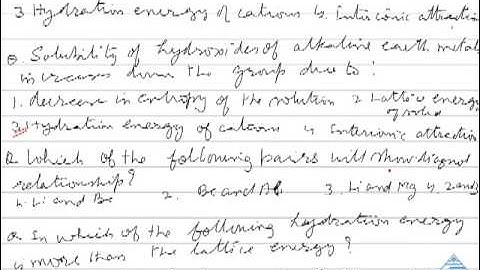 3 Hydration energy of cations 4. Interionic attraction
Q. Solubility of hydroxides of alkaline earth metals
increases down the group due to:
1. decrease in entropy of the solution 2 Lattice energy
of solid
3. Hydration energy of cations 4 Interionic attraction
Q Which of the following pairs will show diagonal
relationship?
1. Li and Be 2. Be and Al 3. Li and Mg 4. 2 and 3
Q. In which of the following hydration energy
is more than the lattice energy?